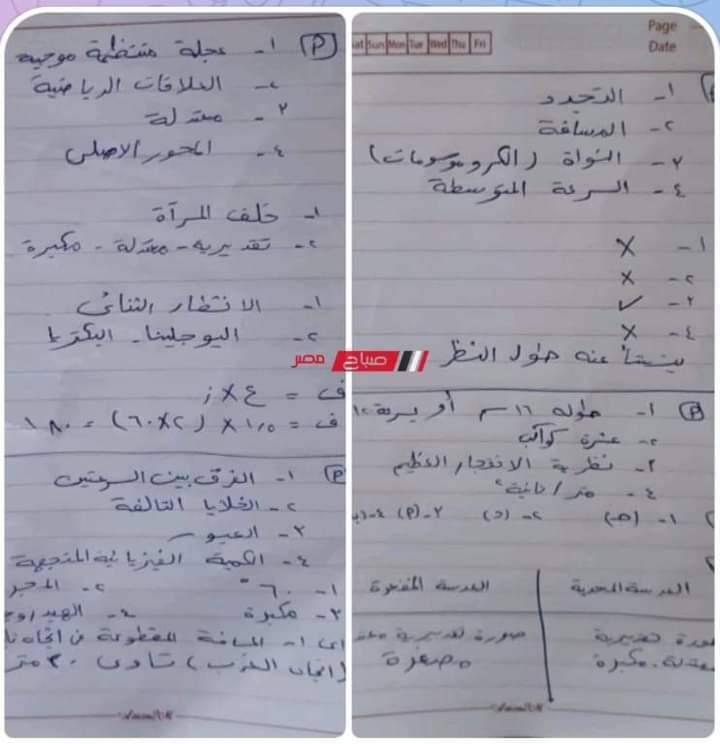 Page
Date
Sun Mon Tue Wed Thu Fri
١- التجدد
٢- المسافة
٣- النواة (الكروموسومات)
٤- السرعة المتوسطة
١- ×
٢- ×
٣- ✓
٤- ×
ينشأ عنه طول النظر
١- طوله ١٦ سم أو يسرة
٢- عشرة كواكب
٣- نظرية الانفجار العظيم
٤- متر/ثانية²
١- (هـ) ٢- (د) ٣- (P) ٤-
العدسة المحدبة العدسة المقعرة
تقديرية صورة تقديرية
معتدلة. مكبرة مصغرة
(P) ١- عجلة منتظمة موجبة
٢- العلاقات الرياضية
٣- معتدلة
٤- المحور الأصلى
١- خلف المرآة
٢- تقديرية - معتدلة - مكبرة
١- الانشطار الثنائى
٢- اليوجلينا - البكتريا
صباح مصر
ف = ع × ز
ف = ١,٥ × (٢×٦٠) = ١٨٠
(P) ١- الفرق بين السرعتين
٢- الخلايا التالفة
٣- العبور
٤- الكمية الفيزيائية المتجهة
١- ٦٠° ٢-
٣- مكبرة ٤-
١- المسافة المقطوعة فى اتجاه
(اتجاه الغرب) تساوى ٣٠ متر